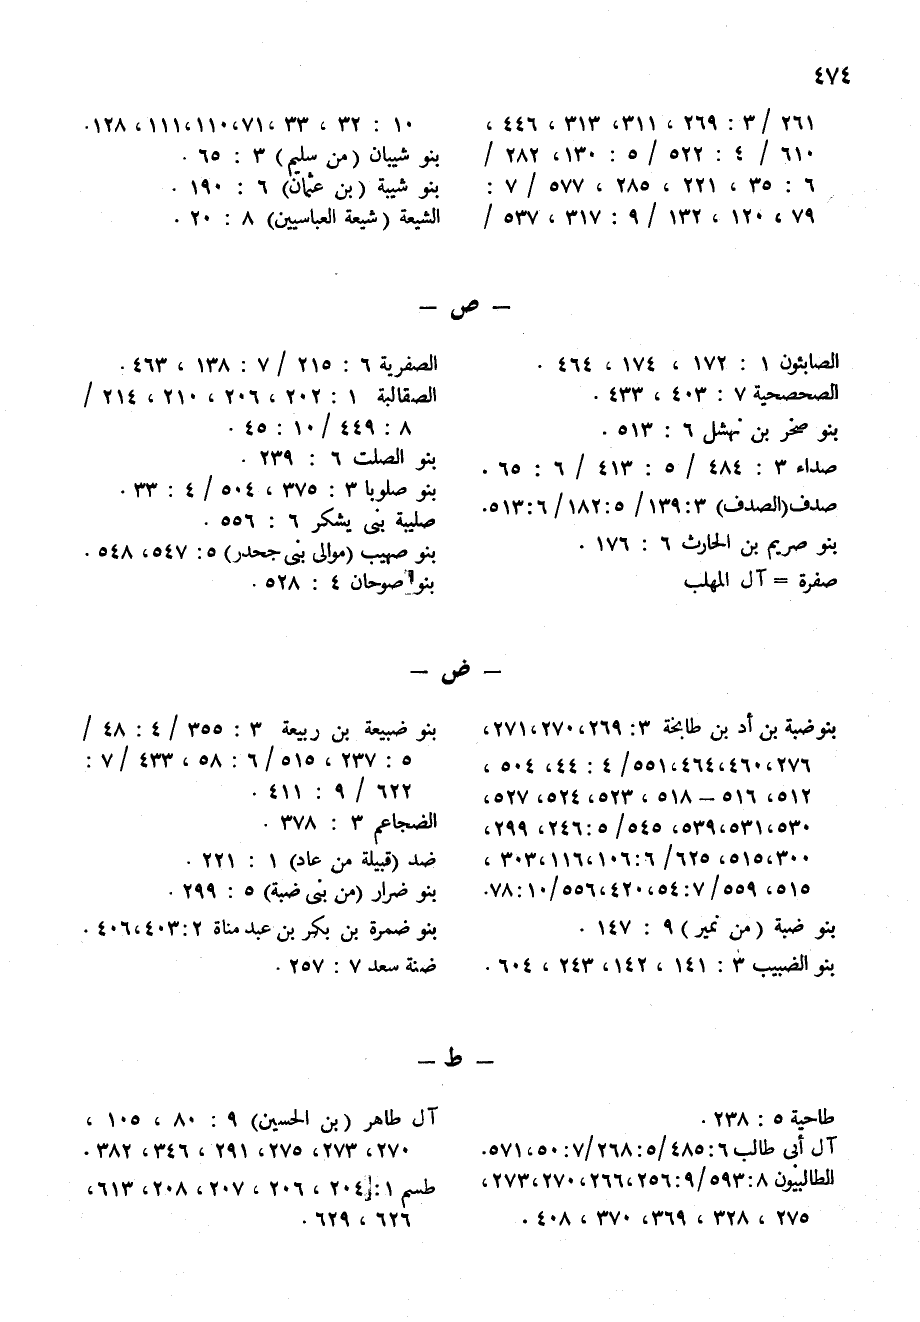 ٤٧٤
٢٦١ / ٣ : ٢٦٩ ، ٣١١، ٣١٣ ، ٤٤٦ ،
٦١٠ / ٤ : ٥٢٢ / ٥ : ١٣٠، ٢٨٢ /
٦ : ٣٥ ، ٢٢١ ، ٢٨٥ ، ٥٧٧ / ٧ :
٧٩ ، ١٢٠ ، ١٣٢ / ٩ : ٣١٧ ، ٥٣٧ /
١٠ : ٣٢ ، ٣٣ ،٧١،١١٠،١١١ ، ١٢٨.
بنو شيبان (من سليم) ٣ : ٦٥ .
بنو شيبة (بن عثمان) ٦ : ١٩٠ .
الشيعة (شيعة العباسيين) ٨ : ٢٠ .
– ص –
الصابئون ١ : ١٧٢ ، ١٧٤ ، ٤٦٤ .
الصحصحية ٧ : ٤٠٣ ، ٤٣٣ .
بنو صخر بن نهشل ٦ : ٥١٣ .
صداء ٣ : ٤٨٤ / ٥ : ٤١٣ / ٦ : ٦٥ .
صدف(الصدف) ٣:١٣٩ /٥:١٨٢/ ٥١٣:٦.
بنو صريم بن الحارث ٦ : ١٧٦ .
صفرة = آل المهلب
الصفرية ٦ : ٢١٥ / ٧ : ١٣٨ ، ٤٦٣.
الصقالبة ١ : ٢٠٢ ، ٢٠٦ ، ٢١٠ ، ٢١٤ /
٨ : ٤٤٩ / ١٠ : ٤٥ .
بنو الصلت ٦ : ٢٣٩ .
بنو صلوبا ٣ : ٣٧٥ ، ٥٠٤ / ٤ : ٣٣ .
صليبة بنى يشكر ٦ : ٥٥٦ .
بنو صهيب (موالى بنى جحدر) ٥ : ٥٤٧، ٥٤٨ .
بنو صوحان ٤ : ٥٢٨ .
– ض –
بنو ضبة بن أد بن طابخة ٣: ٢٦٩،٢٧٠ ،٢٧١،
٢٧٦،٤٦٠،٤٦٤،٥٥١/ ٤ : ٤٤، ٥٠٤ ،
٥١٢، ٥١٦ – ٥١٨ ، ٥٢٣، ٥٢٤، ٥٢٧،
٥٣٠،٥٣١،٥٣٩، ٥٤٥ /٢٤٦:٥، ٢٩٩،
٣٠٠،٥١٥، ٦٢٥/ ٦:١٠٦،١١٦، ٣٠٣ ،
٥١٥، ٥٥٩ /٥٤:٧، ٤٢٠،٥٥٦/ ٧٨:١٠.
بنو ضبة (من نمير) ٩ : ١٤٧ .
بنو الضبيب ٣ : ١٤١ ، ١٤٢، ٢٤٣ ، ٦٠٤ .
بنو ضبيعة بن ربيعة ٣ : ٣٥٥ / ٤ : ٤٨ /
٥ : ٢٣٧ ، ٥١٥/ ٦ : ٥٨ ، ٤٣٣ / ٧ :
٦٢٢ / ٩ : ٤١١ .
الضجاعم ٣ : ٣٧٨ .
ضد (قبيلة من عاد) ١ : ٢٢١ .
بنو ضرار (من بنى ضبة) ٥ : ٢٩٩ .
بنو ضمرة بن بكر بن عبد مناة ٢:٤٠٣،٤٠٦ .
ضنة سعد ٧ : ٢٥٧ .
– ط –
طاحية ٥ : ٢٣٨ .
آل أبى طالب ٦:٤٨٥/ ٥:٢٦٨/ ٧:٥٠، ٥٧١.
الطالبيون ٨:٥٩٣/ ٩:٢٥٦،٢٦٦،٢٧٠،٢٧٣،
٢٧٥ ، ٣٢٨ ، ٣٦٩، ٣٧٠ ، ٤٠٨ .
آل طاهر (بن الحسين) ٩ : ٨٠ ، ١٠٥ ،
٢٧٠، ٢٧٣، ٢٧٥، ٢٩١ ، ٣٤٦ ، ٣٨٢ .
طسم ١: ٢٠٤ ، ٢٠٦ ، ٢٠٧ ، ٢٠٨ ، ٦١٣،
٦٢٦ ، ٦٢٩ .